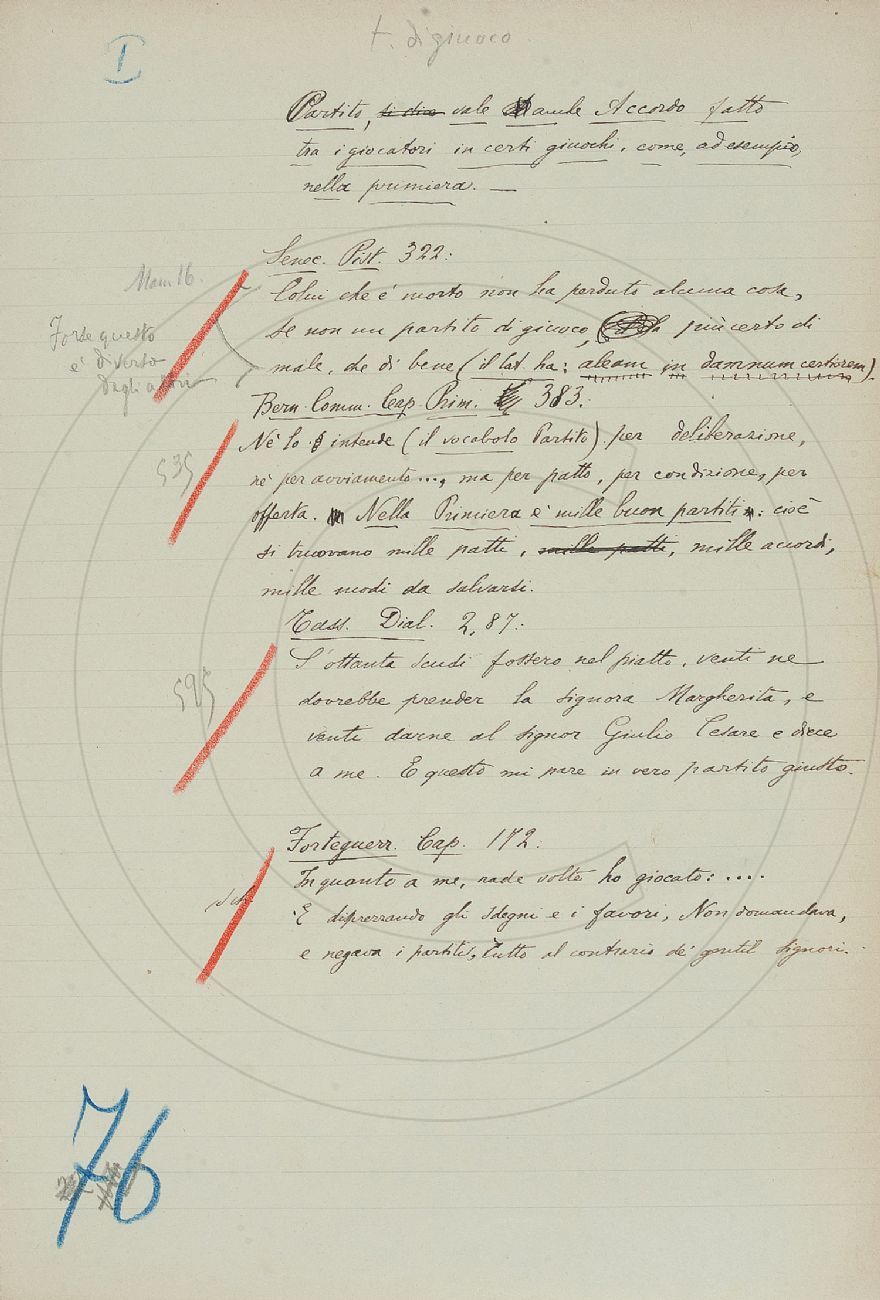 t. di giuoco
I
Partito, si dice vale anche Accordo fatto
tra i giocatori in certi giuochi, come, ad esempio,
nella primiera. —
Senec. Pist. 322:
Mam 16.
Colui che è morto non ha perduto alcuna cosa,
Forse questo
se non un partito di giuoco, più certo di
è diverso
male, che di bene (il lat. ha: aleam in damnum certiorem).
dagli altri
Bern. Comm. Cap. Prim. 383:
Nè lo intende (il vocabolo Partito) per deliberazione,
535
nè per avviamento..., ma per patto, per condizione, per
offerta. Nella Primiera è mille buon partiti: cioè
si truovano mille patti, mille patti, mille accordi,
mille modi da salvarsi.
Tass. Dial. 2, 87:
S'ottanta scudi fossero nel piatto, venti ne
595
dovrebbe prender la signora Margherita, e
venti darne al signor Giulio Cesare e diece
a me. E questo mi pare in vero partito giusto.
Forteguerr. Cap. 172:
In quanto a me, rade volte ho giocato: ....
E disprezzando gli sdegni e i favori, Non domandava,
e negava i partiti, Tutto al contrario de' gentil signori.
76